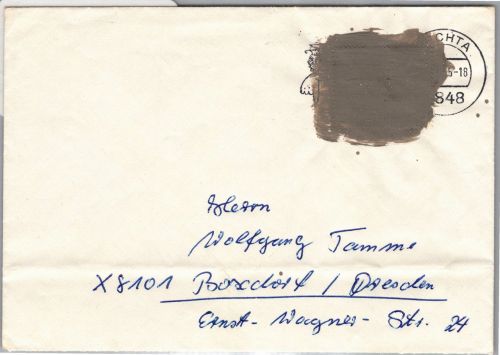 CHTA
5-18
848
Herrn
Wolfgang Tamme
X8101 Boxdorf / Dresden
Ernst-Wagner-Str. 24